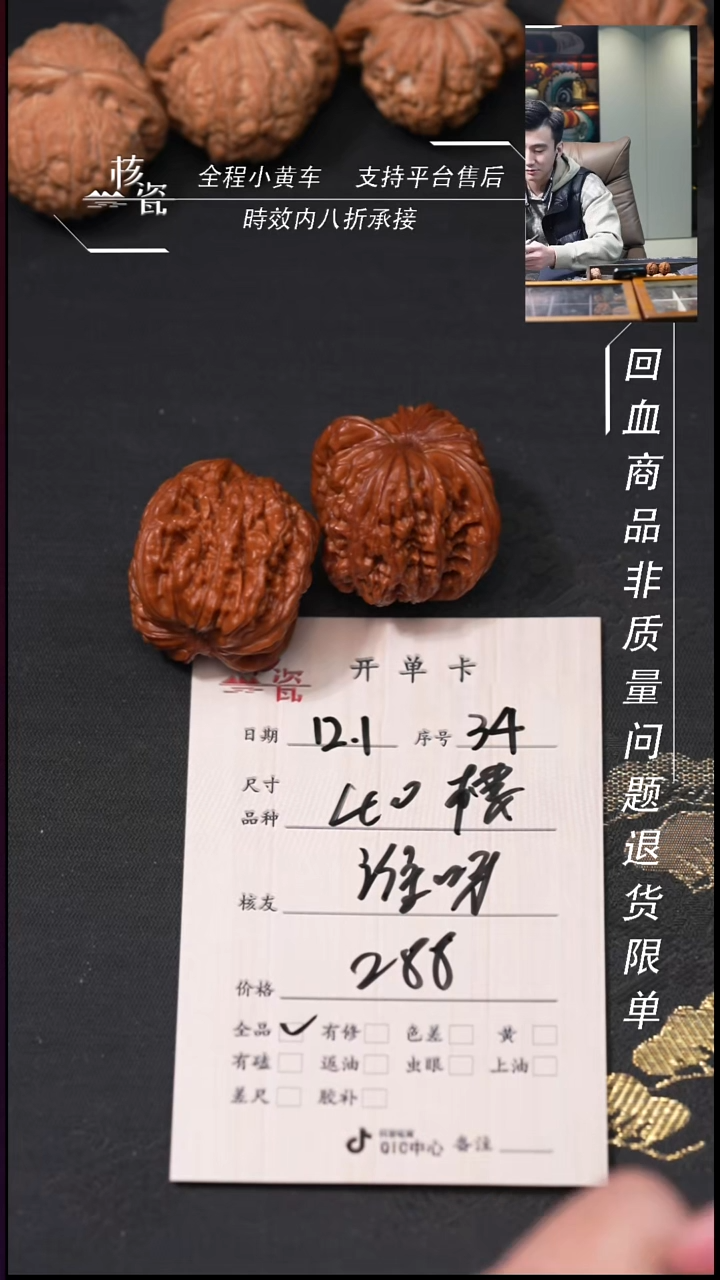 核瓷
全程小黄车 支持平台售后
時效内八折承接
回血商品非质量问题退货限单
瓷 开单卡
日期 12.1 序号 34
尺寸
品种 40 楼
核友
价格 288
全品 ✓ 有修 色差 黄
有磕 返油 虫眼 上油
差尺 胶补
QIC中心 备注